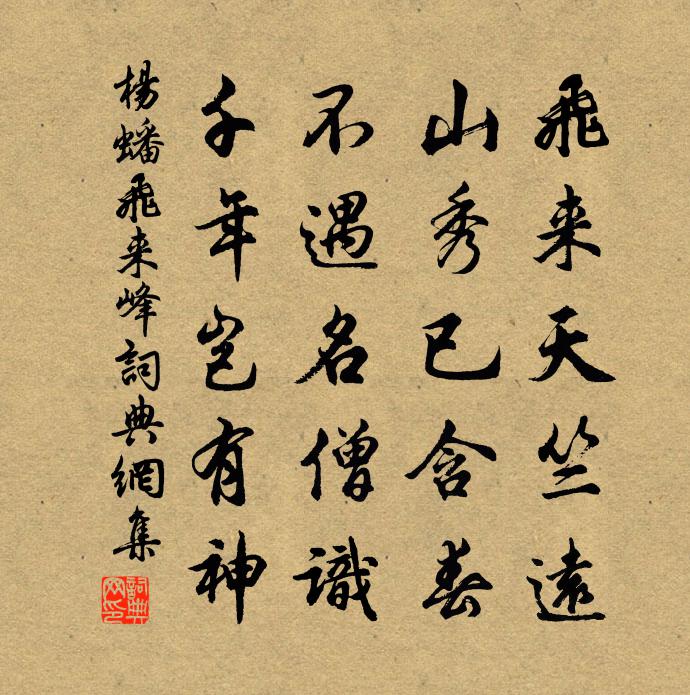 飛来天竺遠
山秀已含春
不遇名僧識
千年豈有神
楊蟠飛来峰詞典網集
詞典
网印